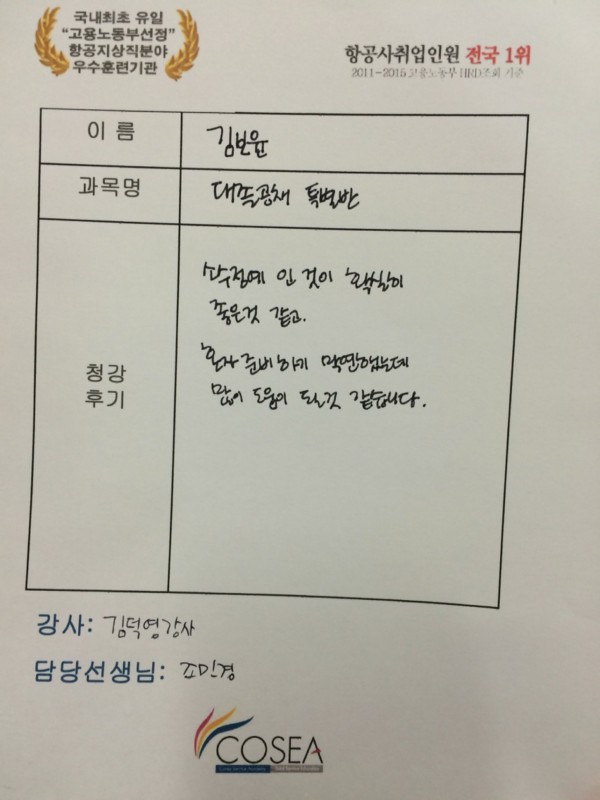 국내최초 유일
"고용노동부선정"
항공지상직분야
우수훈련기관
항공사취업인원 전국 1위
2011-2015 고용노동부 HRD조회 기준
이 름
김보윤
과목명
대졸공채 특별반
청강
후기
소수정예 인 것이 확실히
좋은것 같고.
혼자 준비하기 막연했는데
많이 도움이 될것 같습니다.
강사: 김덕영강사
담당선생님: 조민경
COSEA